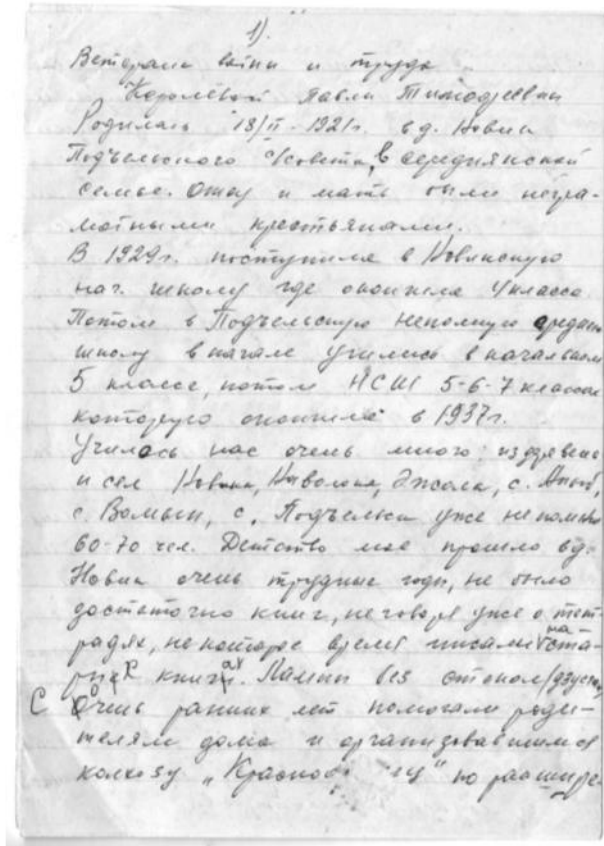 1).
Ветерана войны и труда
Королёвой Павлы Тимофеевны
Родилась 18/II-1921г. в д. Новик
Подъельского с/совета, в середнянской
семье. Отец и мать были негра-
мотными крестьянами.
В 1929г. поступила в Новикскую
нач. школу где окончила 4 класса.
Потом в Подъельскую неполную средню
школу в начале учились в начальном
5 классе, потом НСШ 5-6-7 классы
которую окончила в 1937г.
Училось нас очень много: из деревень
и сел Новика, Наволока, Эжола, с.
с. Вомын, с. Подъельск уже не помню
60-70 чел. Детство мое прошло в д.
Новик очень трудные годы, не было
достаточно книг, не говоря уже о тет-
радях, некоторое время писали на ста-
рых книгах. Лампы без стекол
С очень ранних лет помогали роди-
телям дома и организовавшимся
колхозу „Красное по расшире-